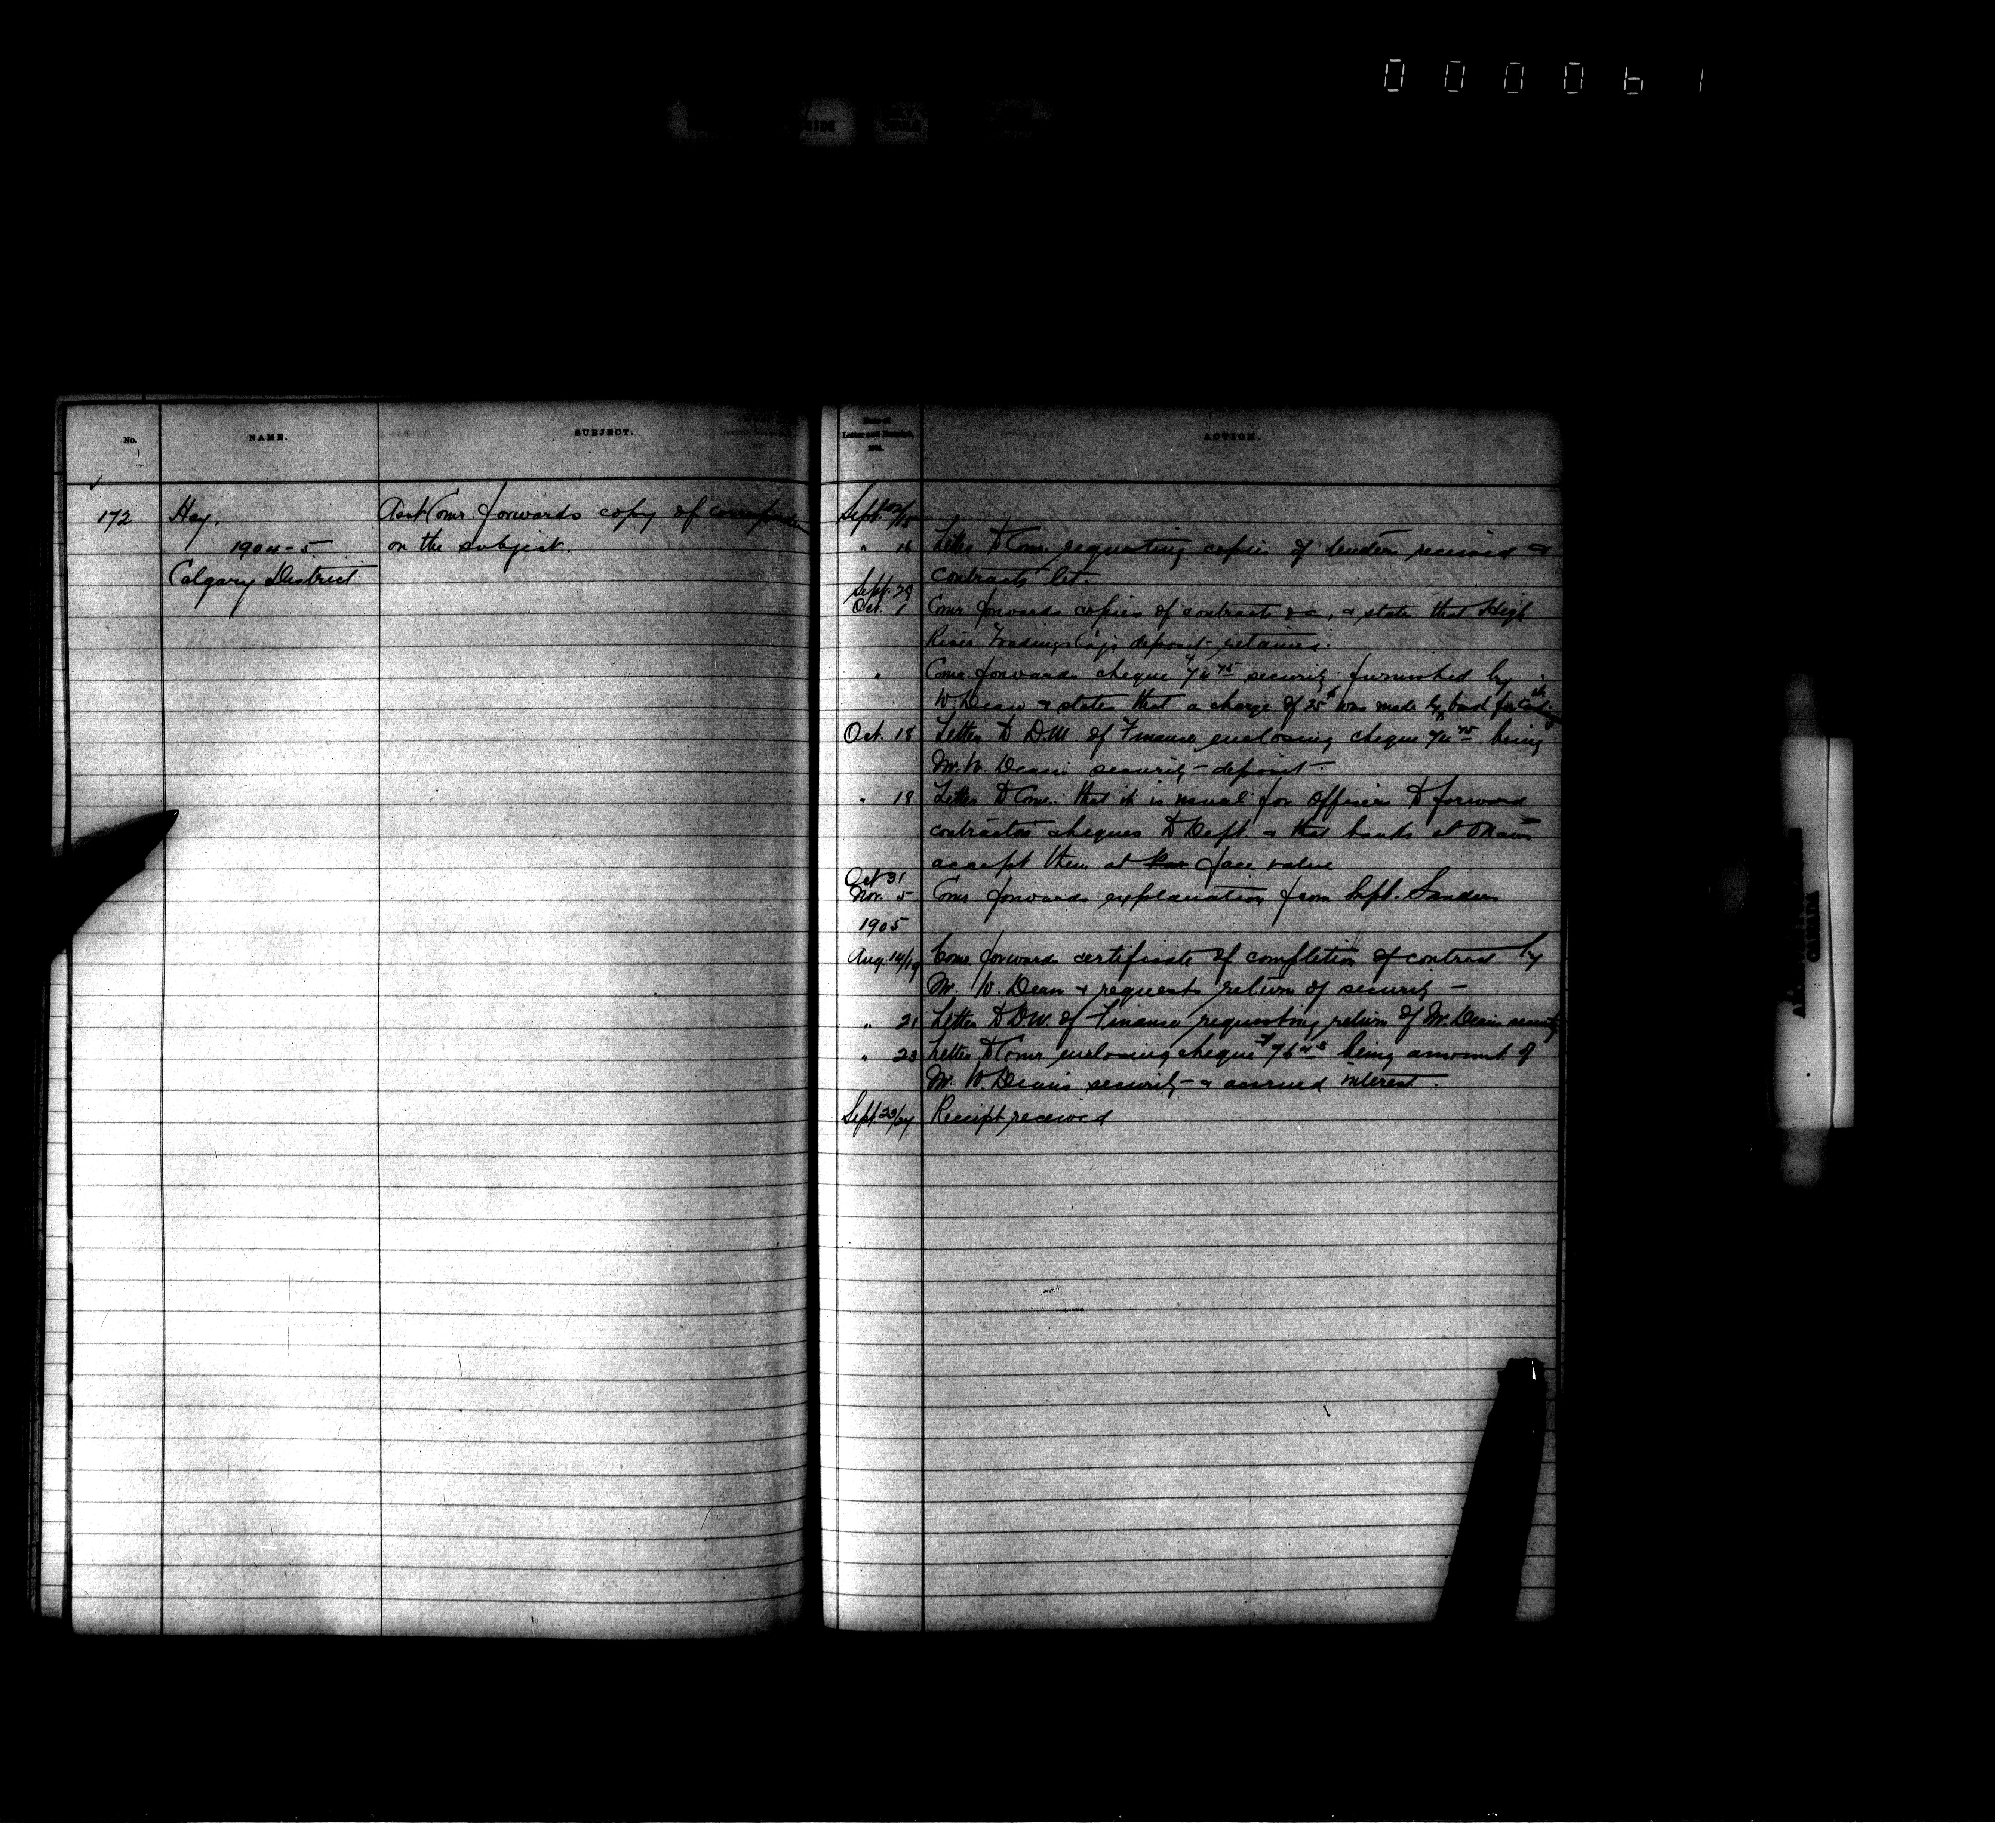 000061
No.
NAME.
SUBJECT.
Date of
Letter and Receipt,
ACTION.
172
Hay,
1904-5
Calgary District
Asst Comr. forwards copy of
on the subject.
Sept.
" 16 Letter to Comr. requesting copies of tenders received &
contracts let.
Sept. 29
Oct. 1 Comr forwards copies of contracts &c, & states that High
River Trading Co's deposit retained.
" Comr. forwards cheque security furnished by
W. Dean & states that a charge of 25¢ was made by bank for
Oct. 18 Letter to D.M. of Finance enclosing cheque being
Mr. W. Dean's security deposit.
" 18 Letter to Comr. that it is usual for Officers to forward
contractors cheques to Dept. & that banks at Ottawa
accept them at face value
Oct 31
Nov. 5 Comr forwards explanation from Supt. Sanders
1905
Aug. 14/19 Comr forwards certificate of completion of contract by
Mr. W. Dean & requests return of security
" 21 Letter to D.M. of Finance requesting return of Mr. Dean's security
" 23 Letter to Comr enclosing cheque being amount of
Mr. W. Dean's security & accrued interest.
Sept 23/27 Receipt received